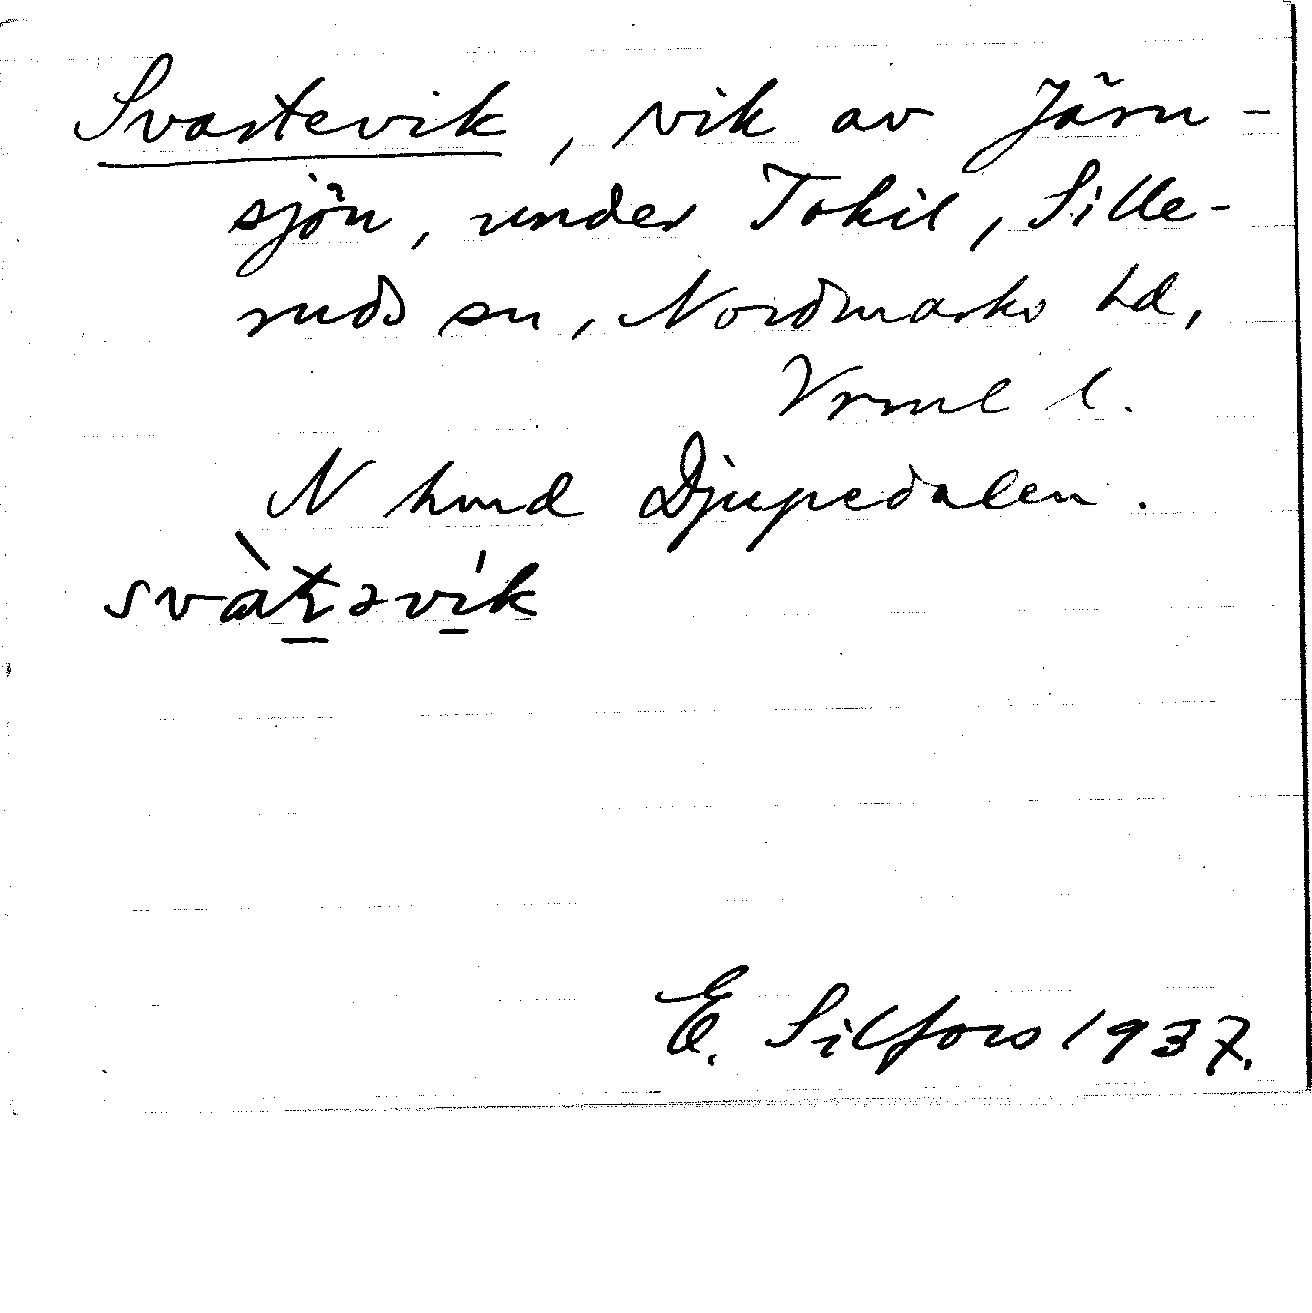 Svartevik, vik av Järn-
sjön, under Tokil, Sille-
ruds sn, Nordmarks hd,
Vrml l.
N hmd Djupedalen.
svàʈəvík
E. Silfors 1937.